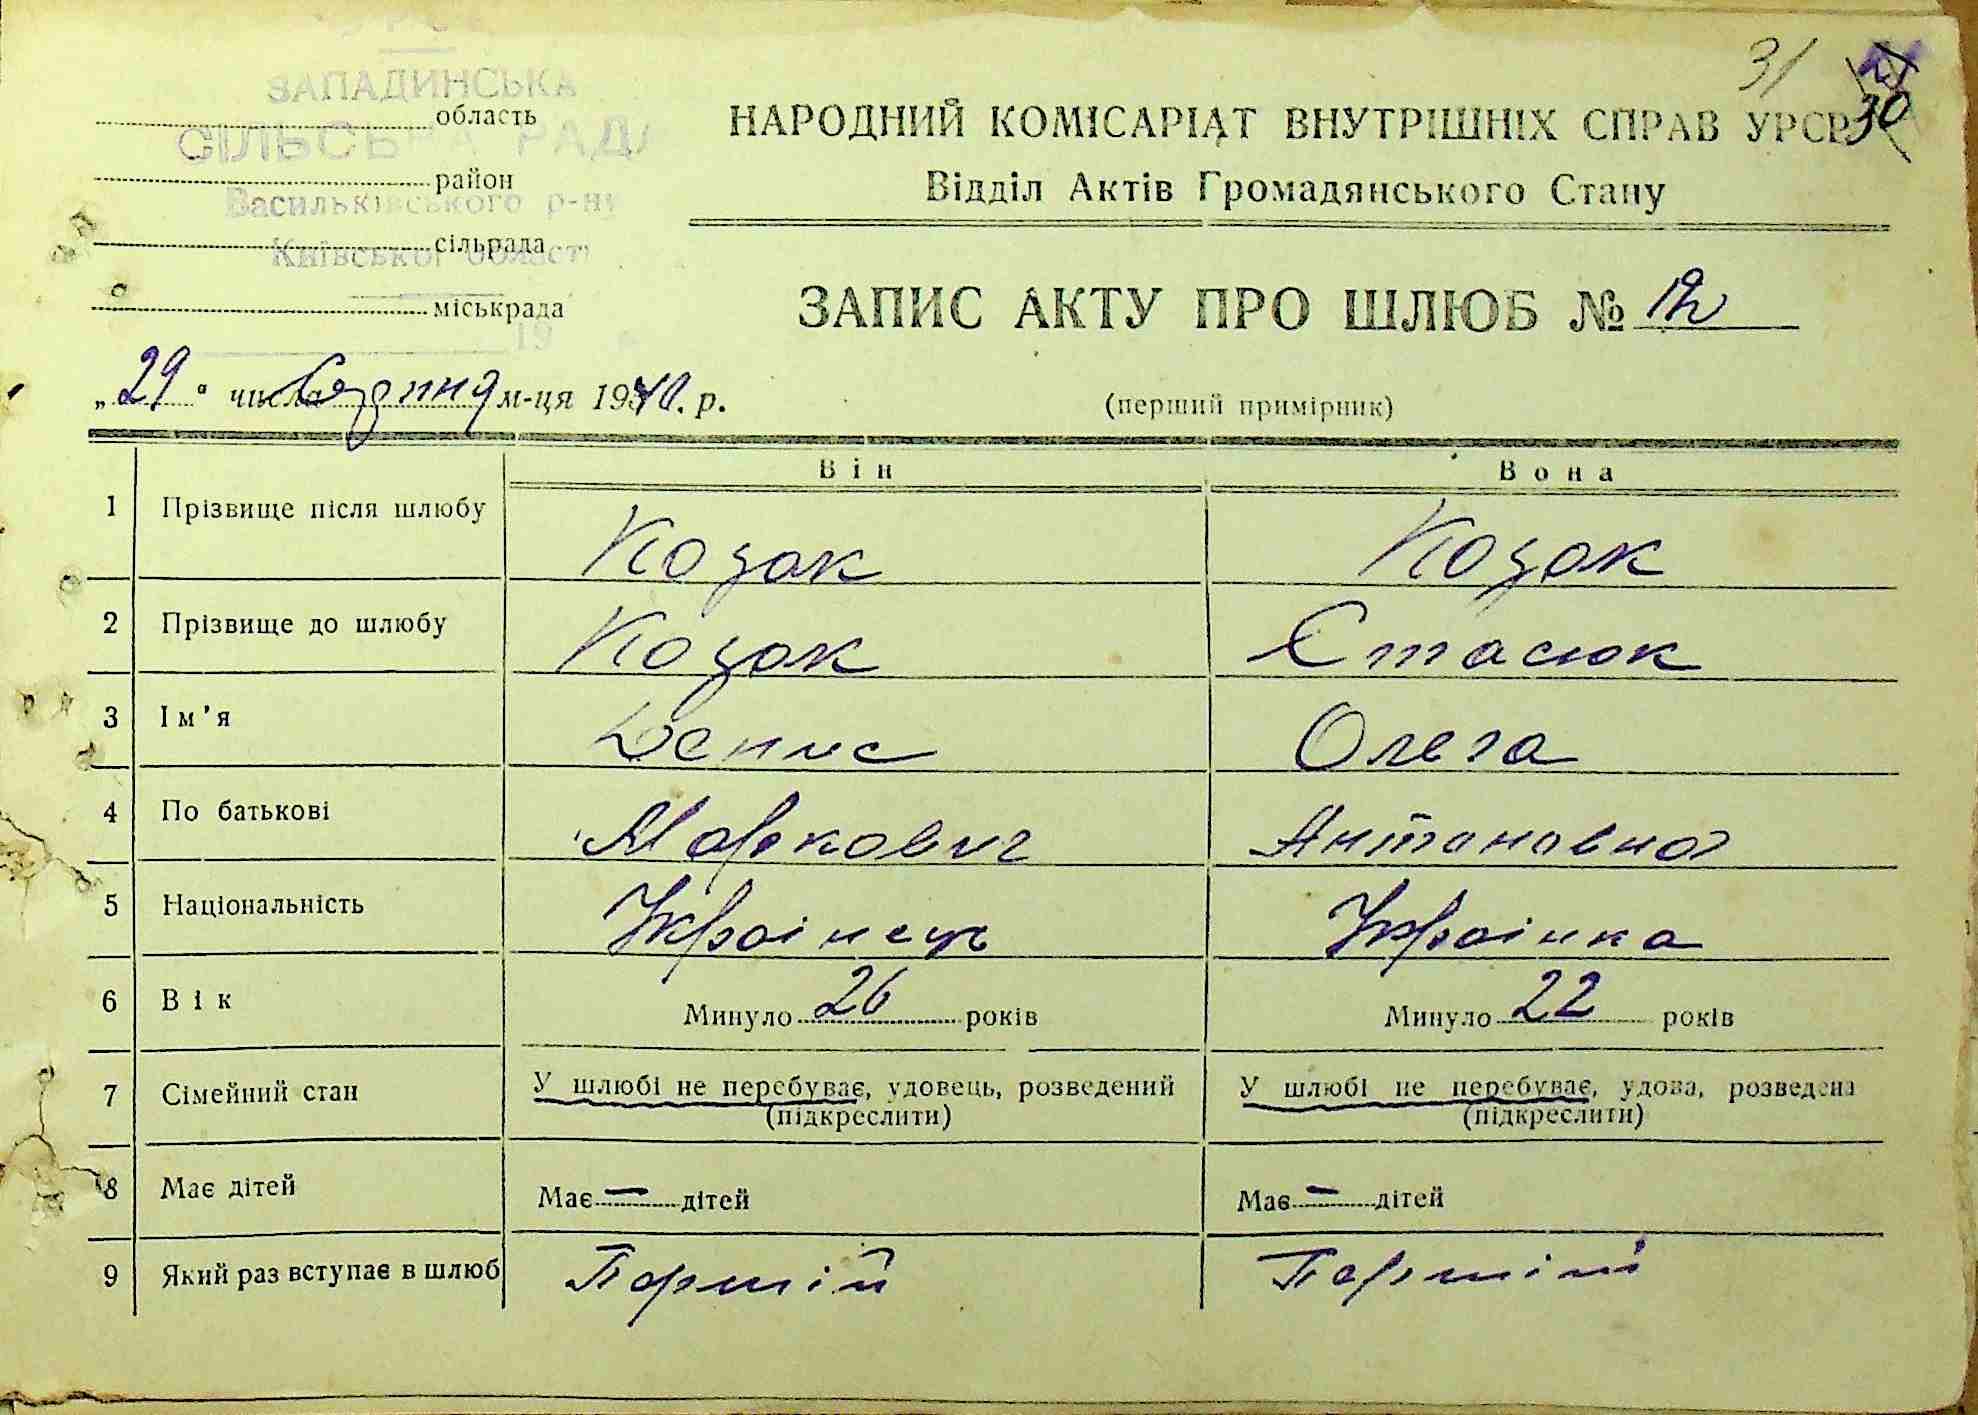 31 30
УРСР
ЗАПАДИНСЬКА
область
СІЛЬСЬКА РАДА
район
Васильківського р-ну
сільрада
Київської області
міськрада
19
НАРОДНИЙ КОМІСАРІАТ ВНУТРІШНІХ СПРАВ УРСР
Відділ Актів Громадянського Стану
ЗАПИС АКТУ ПРО ШЛЮБ № 12
„29“ числа м-ця 1940. р.
(перший примірник)
Він Вона
1 Прізвище після шлюбу Козак Козак
2 Прізвище до шлюбу Козак Стасюк
3 Ім'я Денис Олега
4 По батькові Маркович Антоновна
5 Національність Українець Українка
6 Вік Минуло 26 років Минуло 22 років
7 Сімейний стан У шлюбі не перебуває, удовець, розведений У шлюбі не перебуває, удова, розведена
(підкреслити) (підкреслити)
8 Має дітей Має — дітей Має — дітей
9 Який раз вступає в шлюб Першій Першій